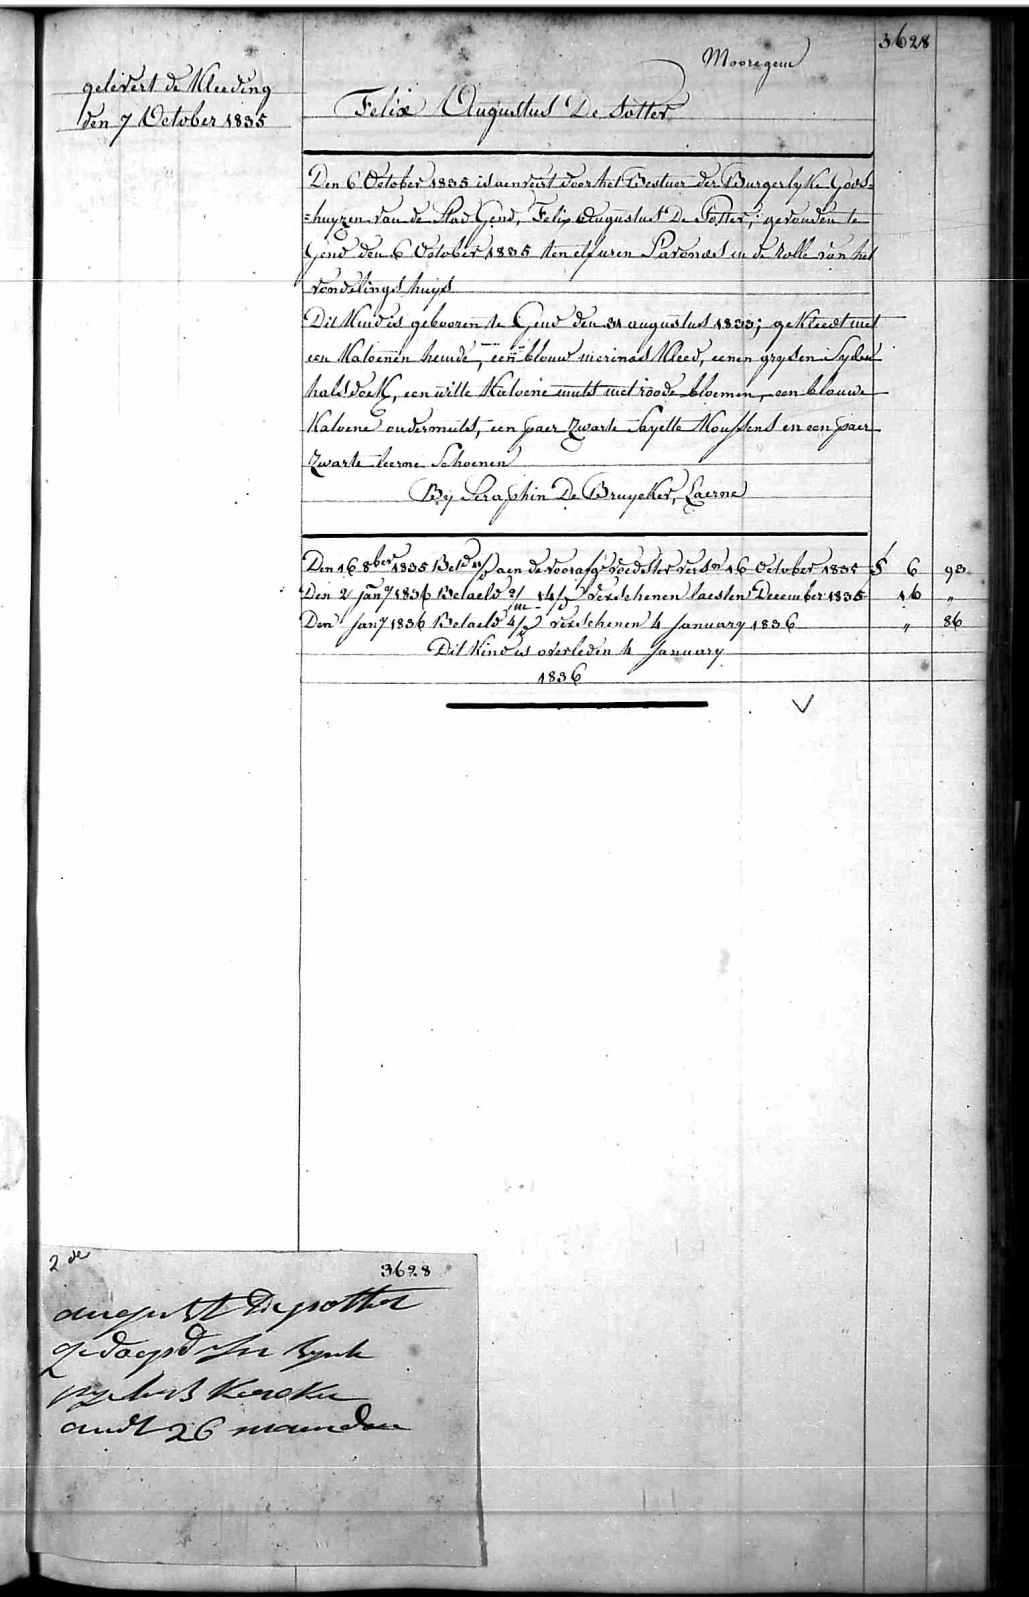 3628
Mooregem
gelivert de Kleeding
den 7 October 1835
Felix Augustus De Potter
Den 6 October 1835 is aenveirt door het Bestuer der Burgerlyke Gods=
=huyzen van de Stad Gend, Felix Augustus De Potter, gevonden te
Gend den 6 October 1835 ten elf uren S'avonds in de Rolle van het
vondelingshuys
Dit Kind is gebooren te Gend den 31 augustus 1833; gekleedt met
een Katoenen hemde, een blouw merinos Kleed, eenen grysen Syden
halsdoek, een witte Katoene muts met roode bloemen, een blouwe
Katoene ondermuts, een paer Zwarte Sayette Koussens en een paer
Zwarte leerne Schoenen
By Seraphin De Bruycker, Laerne
Den 16 8ber 1835 aen de voorafge voedster 16 October 1835 6 93
Den 2 Jany 1836 Betaeld verschenen laesten December 1835 16 "
Den Jany 1836 Betaeld 4/ verschenen 4 January 1836 " 86
Dit Kind is overleden 4 January
1836
2de
3628
august De potter
gedoopd In
Kercke
oudt 26 maenden